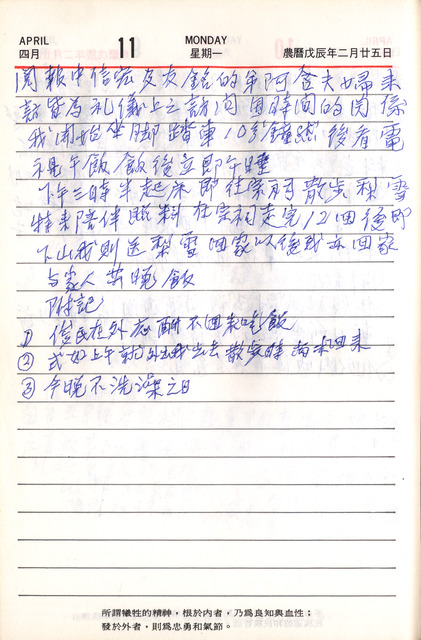 APRIL 11 MONDAY
四月 星期一 農曆戊辰年二月廿五日
閱報中信宏多友銘的弟阿金夫婦来
訪皆為礼儀上之訪问因時间的関係
我開始坐脚踏車10分鐘然後看電
視午飯飯後立即午睡
下午三時半起床即往宗祠散步梨雪
特来陪伴照料在宗祠走完12回後即
下山我則送梨雪回家以後我亦回家
与家人共晚飯
附記
① 信民在外應酬不回来吃飯
② 式如上午前外出我出去散步時尚未回来
③ 今晚不洗澡之日
所謂犧牲的精神，根於內者，乃爲良知與血性；
發於外者，則爲忠勇和氣節。